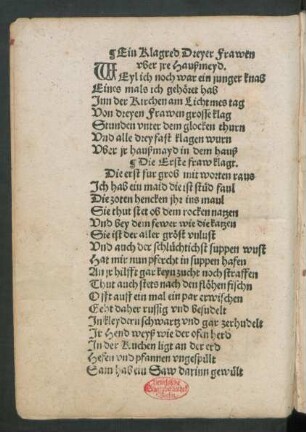 ¶Ein Klagred Dreyer Frawen
vber jre Haußmeyd.
WEyl ich noch war ein junger knab
Eines mals ich gehöret hab
Inn der Kirchen am Lichtmes tag
Von dreyen Frawen grosse klag
Stunden vnter dem glocken thurn
Vnd alle drey fast klagen wurn
Vber jr haußmayd in dem hauß
¶Die Erste fraw klagt.
Die erst fur groß mit worten raus
Ich hab ein maid die ist stüd faul
Die zoten hencken jhr ins maul
Sie thut stet ob dem rocken natzen
Vnd bey dem fewer wie die katzen
Sie ist der aller gröst vnlust
Vnd auch der schlüchtichst suppen wust
Hat mir nun pfercht in suppen hafen
An jr hilfft gar keyn zucht noch straffen
Thut auch stets nach den flöhen fischn
Offt auff ein mal ein par erwischen
Geht daher russig vnd besudelt
In kleydern schwartz vnd gar zerhudelt
Ir Hend weyß wie der ofen herd
In der Kuchen ligt an der erd
Hefen vnd pfannen vngespült
Sam hab ein Saw darinn gewült